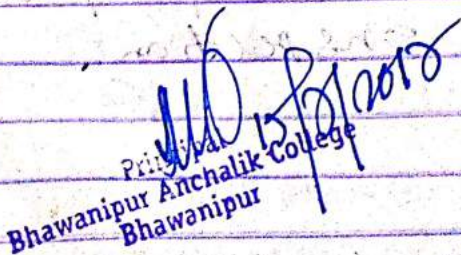 15/2/2018
Principal
Bhawanipur Anchalik College
Bhawanipur